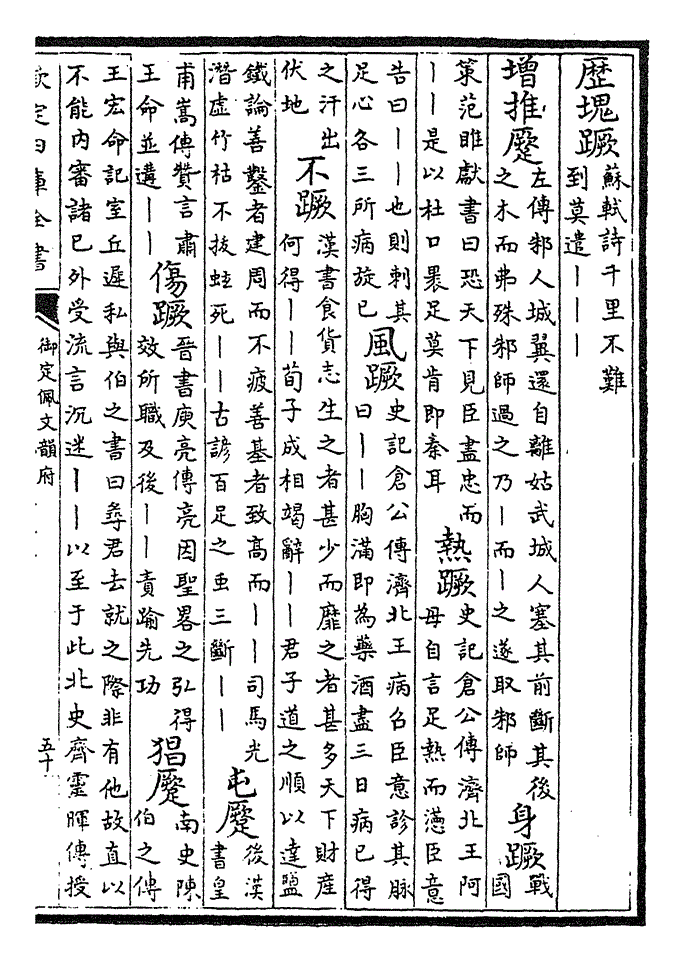 歴塊蹶
蘇軾詩千里不難
到莫遣｜｜｜
增推蹷
左傳邾人城翼還自離姑武城人塞其前斷其後
之木而弗殊邾師過之乃｜而｜之遂取邾師
身蹶
戰
國
策范雎獻書曰恐天下見臣盡忠而
｜｜是以杜口褁足莫肯即秦耳
熱蹶
史記倉公傳濟北王阿
母自言足熱而懣臣意
告曰｜｜也則刺其
足心各三所病旋已
風蹶
史記倉公傳濟北王病召臣意診其脉
曰｜｜胸滿即為藥酒盡三日病已得
之汗出
伏地
不蹶
漢書食貨志生之者甚少而靡之者甚多天下財産
何得｜｜荀子成相竭辭｜｜君子道之順以達鹽
鐵論善鑿者建周而不疲善基者致高而｜｜司馬光
潛虚竹枯不拔蛀死｜｜古諺百足之䖝三斷｜｜
屯蹷
後漢
書皇
甫嵩傳贊言肅
王命並遘｜｜
傷蹶
晉書庾亮傳亮因聖畧之弘得
效所職及後｜｜責踰先功
猖蹷
南史陳
伯之傳
王宏命記室丘遲私與伯之書曰尋君去就之際非有他故直以
不能内審諸已外受流言沉迷｜｜以至于此北史齊靈暉傳授
欽定四庫全書
御定佩文韻府
五十